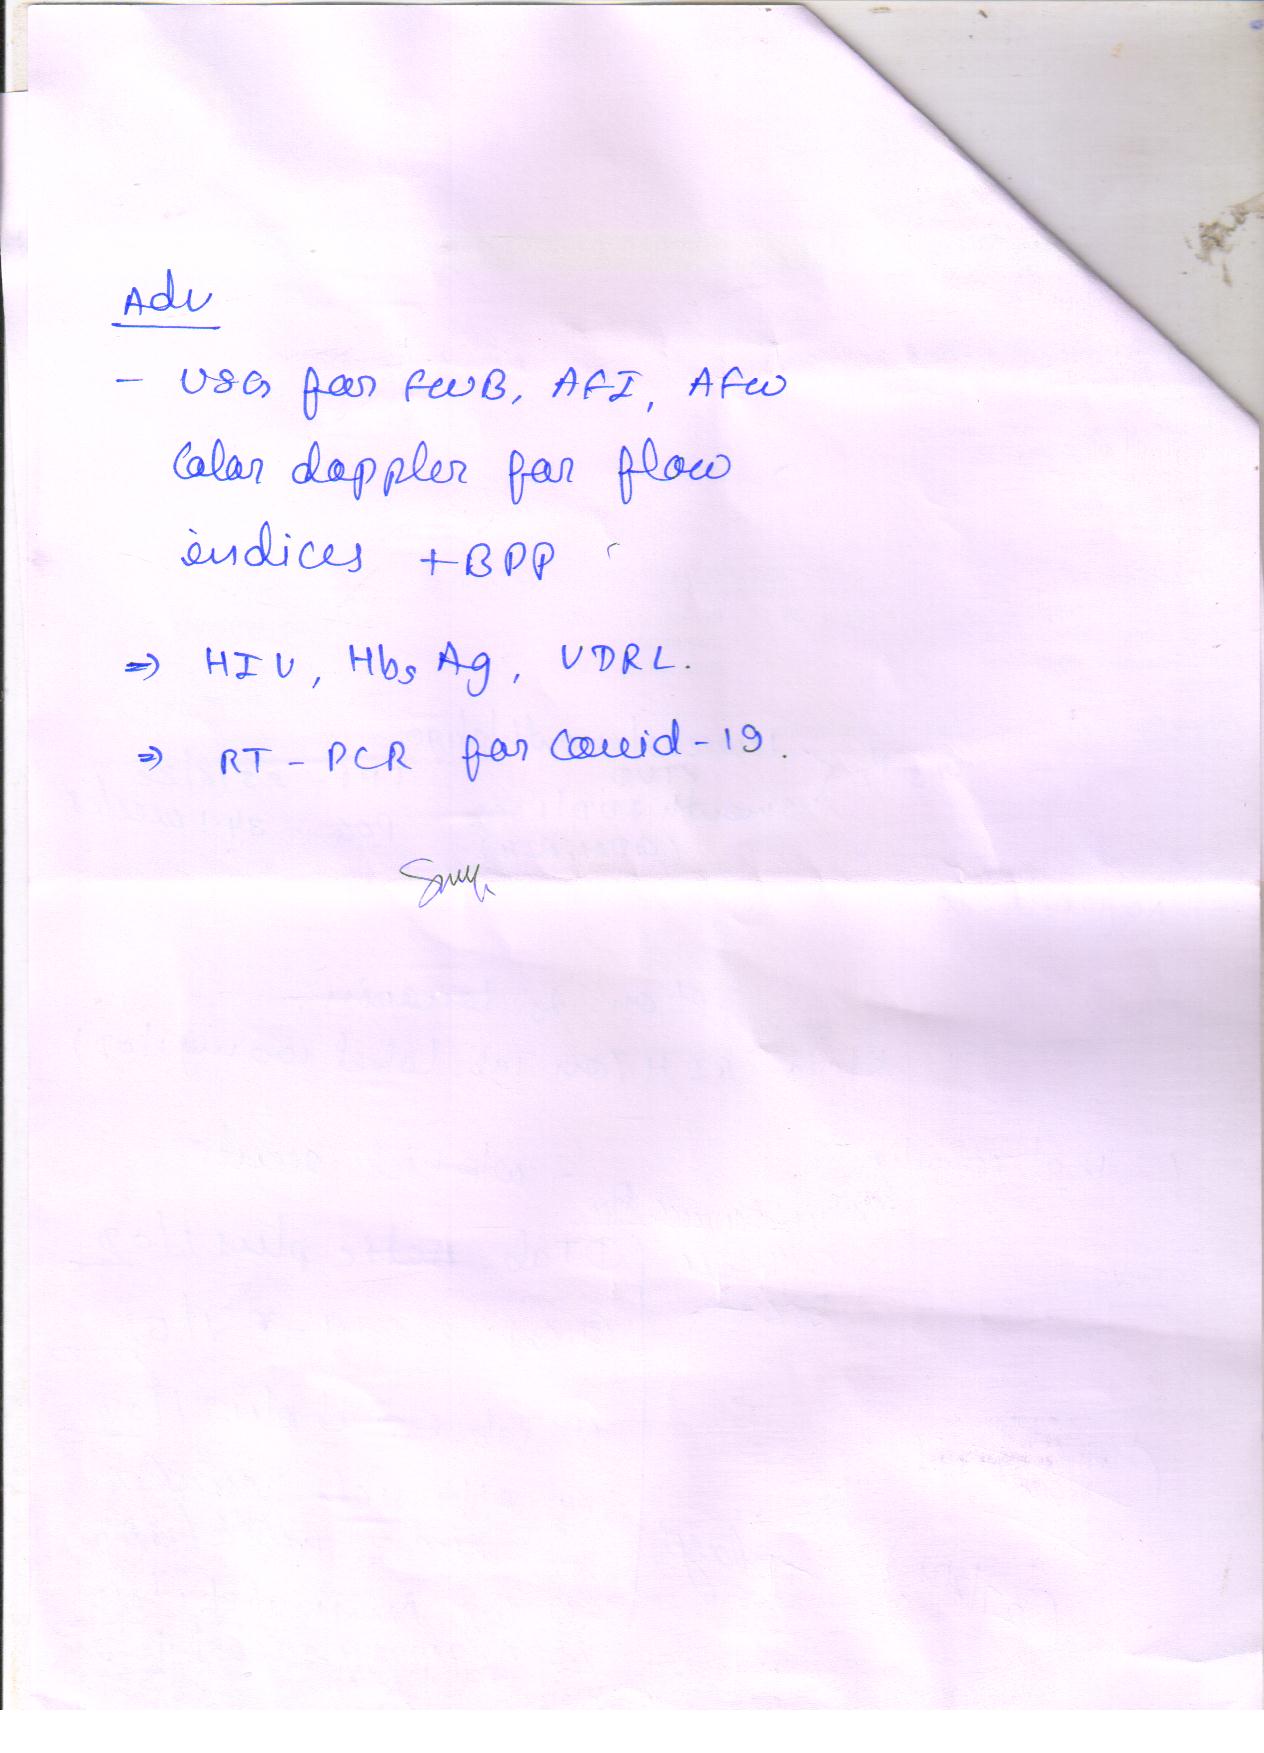 Adv
- USG for FWB, AFI, AFW
Color doppler for flow
indices + BPP
⇒ HIV, HbsAg, VDRL.
⇒ RT-PCR for Covid-19.